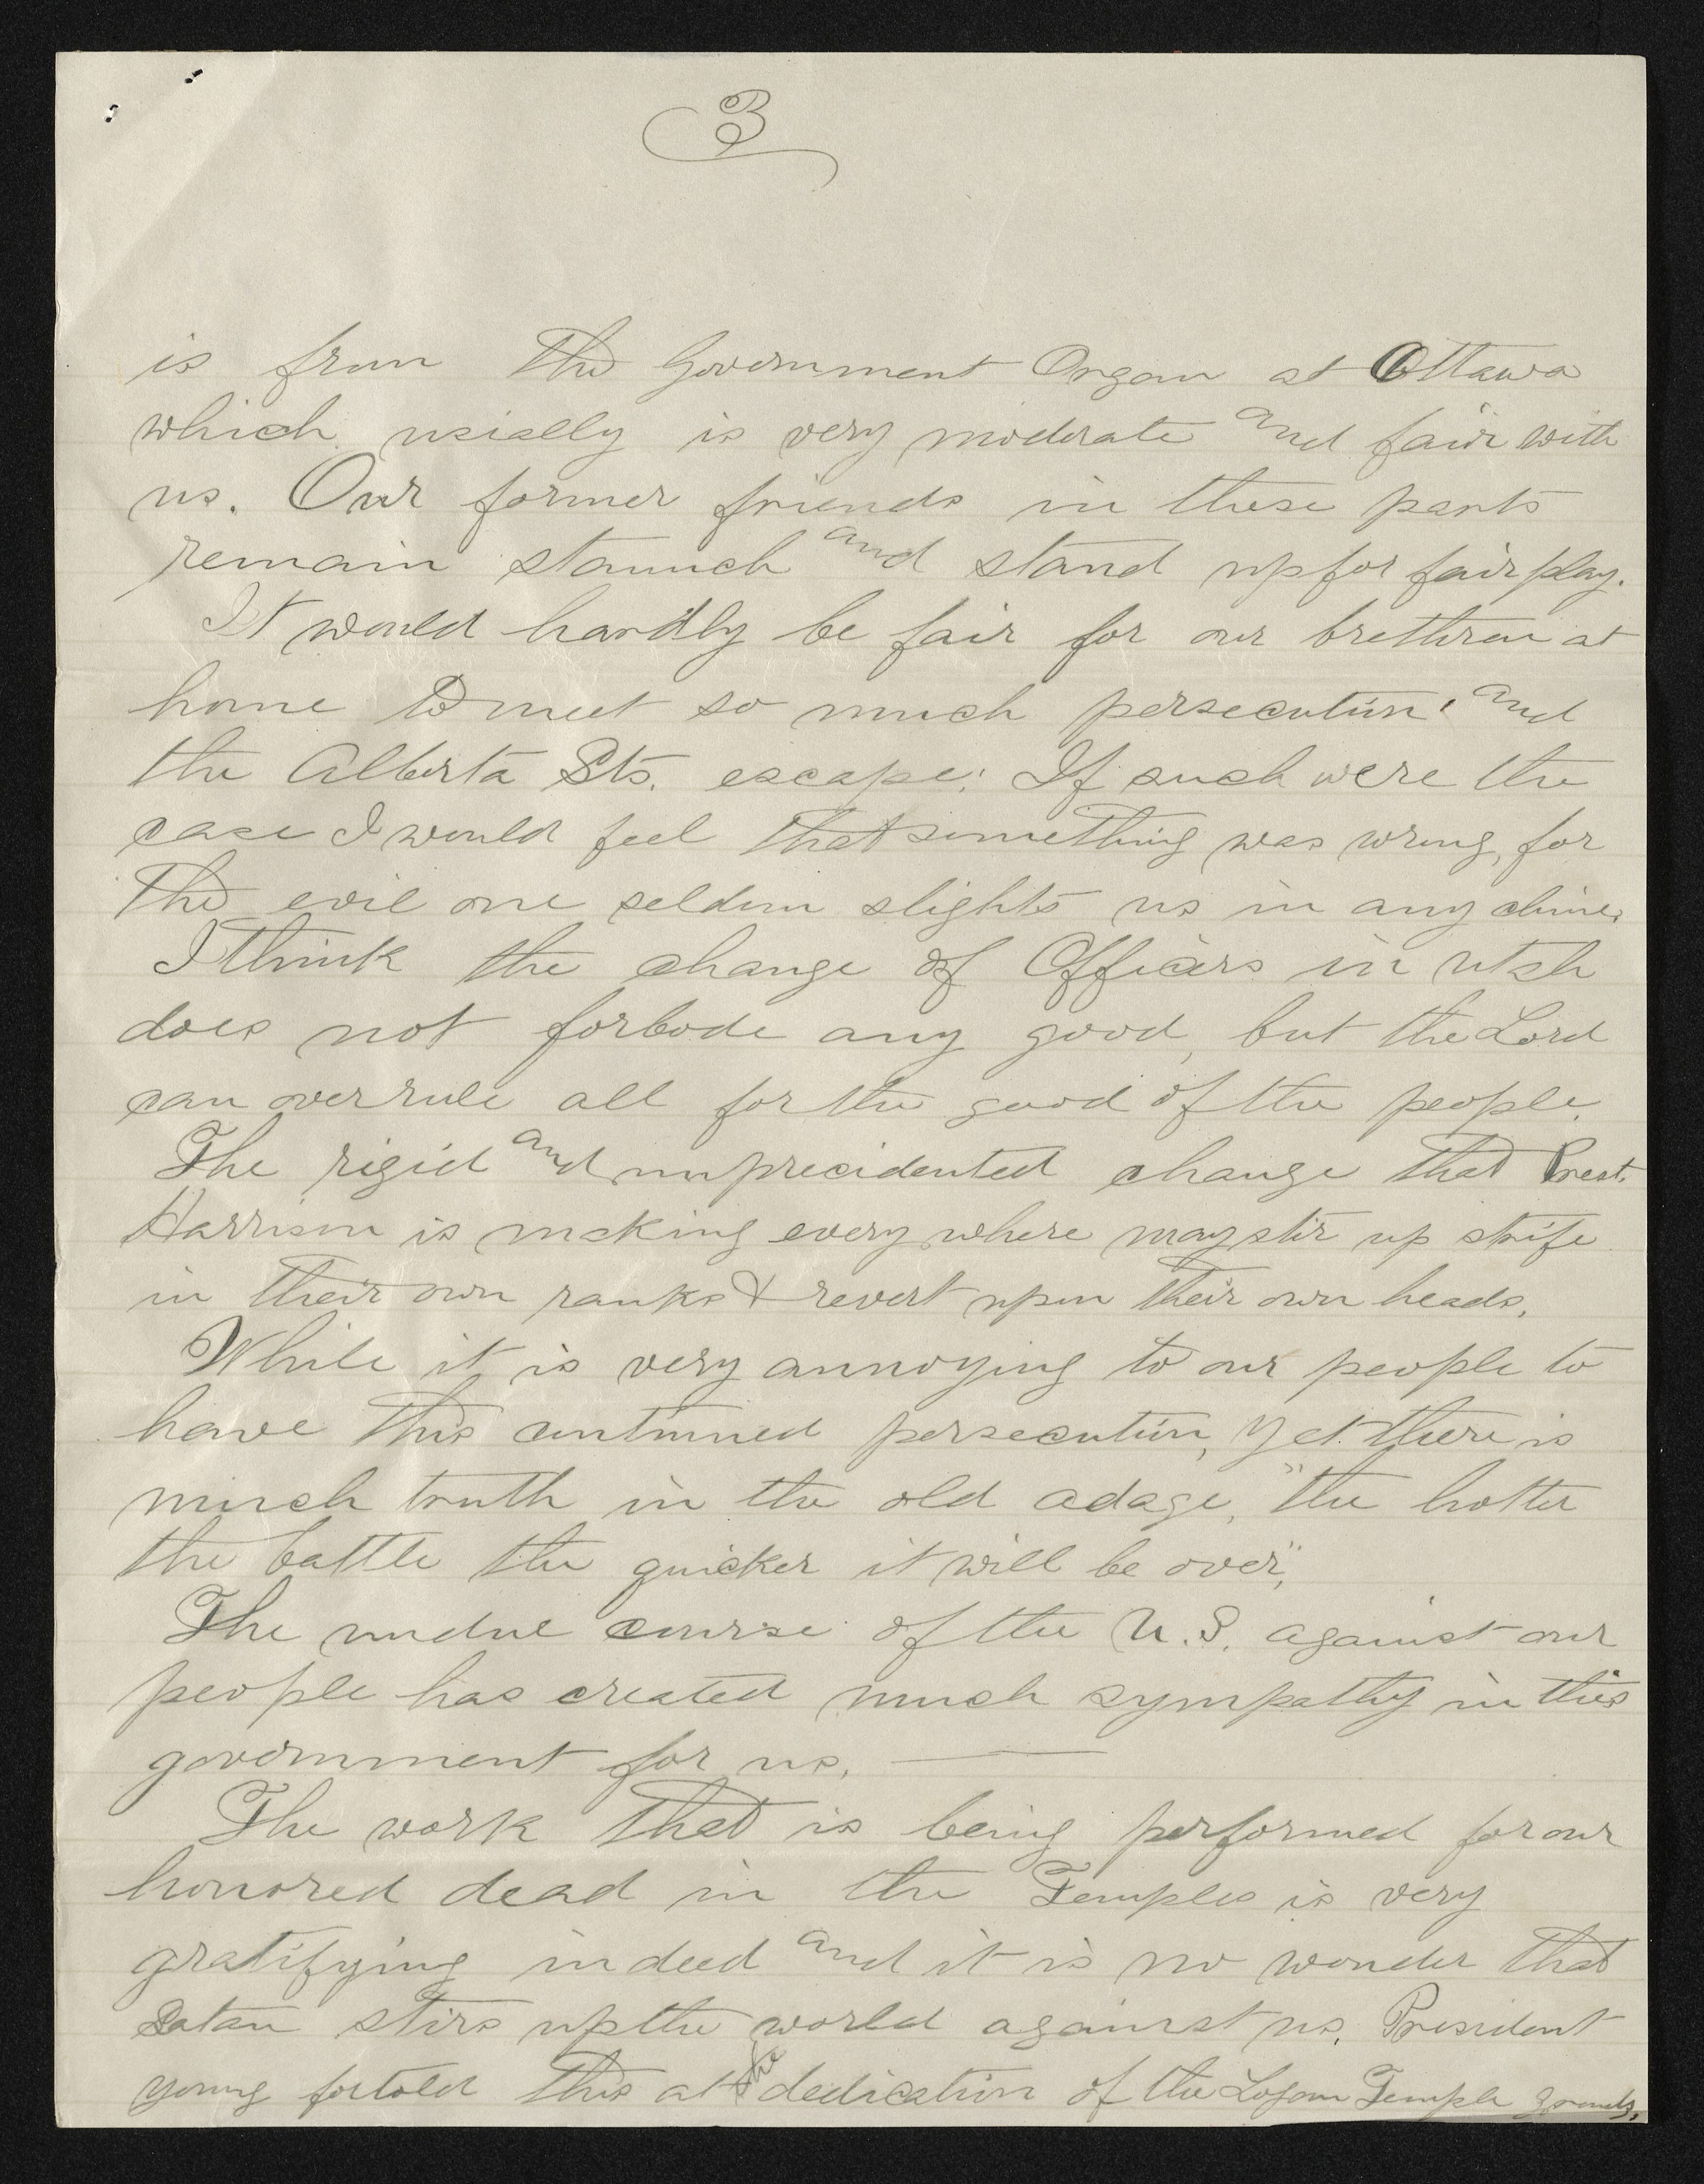 3
is from the Government Organ at Ottawa
which usially is very moderate and fair with
us. Our former friends in these parts
remain staunch and stand up for fair play.
It would hardly be fair for our brethren at
home to meet so much persecution, and
the Alberta Sts. escape; If such were the
case I would feel that something was wrong, for
the evil one seldom slights us in any clime.
I think the change of Officers in Utah
does not forbode any good, but the Lord
can overrule all for the good of the people.
The rigid and unprecidented change that Prest.
Harrison is making every where may stir up strife
in their own ranks & revert upon their own heads.
While it is very annoying to our people to
have this continued persecution, yet there is
much truth in the old adage, "the hotter
the battle the quicker it will be over",
The undue course of the U.S. against our
people has created much sympathy in this
government for us. —
The work that is being performed for our
honored dead in the Temples is very
gratifying indeed and it is no wonder that
Satan stirs up the world against us. President
Young fortold this at the dedication of the Logan Temple grounds,